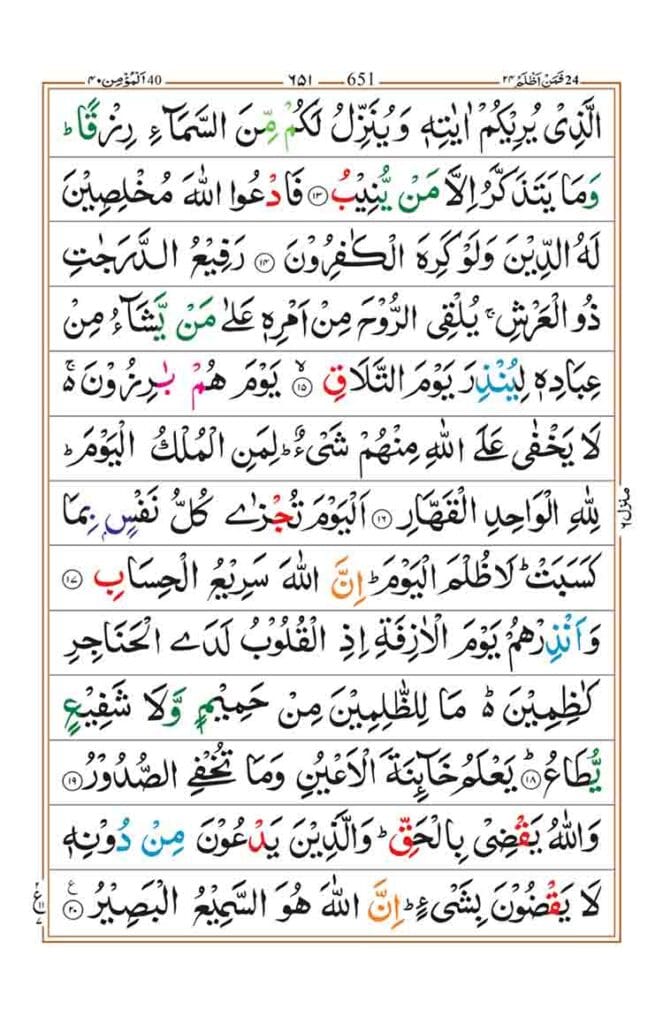 فَمَنْ اَظْلَمُ ٢٤ 24 651 ٦٥١ اَلْمُؤْمِن ٤٠ 40
الَّذِیْ یُرِیْكُمْ اٰیٰتِهٖ وَیُنَزِّلُ لَكُمْ مِّنَ السَّمَآءِ رِزْقًا ؕ
وَمَا یَتَذَكَّرُ اِلَّا مَنْ یُّنِیْبُ ۝۱۳ فَادْعُوا اللّٰهَ مُخْلِصِیْنَ
لَهُ الدِّیْنَ وَلَوْ كَرِهَ الْكٰفِرُوْنَ ۝۱۴ رَفِیْعُ الدَّرَجٰتِ
ذُو الْعَرْشِ ۚ یُلْقِی الرُّوْحَ مِنْ اَمْرِهٖ عَلٰی مَنْ یَّشَآءُ مِنْ
عِبَادِهٖ لِیُنْذِرَ یَوْمَ التَّلَاقِ ۝۱۵ ۙ یَوْمَ هُمْ بٰرِزُوْنَ ۚ۬
لَا یَخْفٰی عَلَی اللّٰهِ مِنْهُمْ شَیْءٌ ؕ لِمَنِ الْمُلْكُ الْیَوْمَ ؕ
لِلّٰهِ الْوَاحِدِ الْقَهَّارِ ۝۱۶ اَلْیَوْمَ تُجْزٰی كُلُّ نَفْسٍۭ بِمَا
كَسَبَتْ ؕ لَا ظُلْمَ الْیَوْمَ ؕ اِنَّ اللّٰهَ سَرِیْعُ الْحِسَابِ ۝۱۷
وَاَنْذِرْهُمْ یَوْمَ الْاٰزِفَةِ اِذِ الْقُلُوْبُ لَدَی الْحَنَاجِرِ
كٰظِمِیْنَ ؕ۬ مَا لِلظّٰلِمِیْنَ مِنْ حَمِیْمٍ وَّلَا شَفِیْعٍ
یُّطَاعُ ؕ ۝۱۸ یَعْلَمُ خَآئِنَةَ الْاَعْیُنِ وَمَا تُخْفِی الصُّدُوْرُ ۝۱۹
وَاللّٰهُ یَقْضِیْ بِالْحَقِّ ؕ وَالَّذِیْنَ یَدْعُوْنَ مِنْ دُوْنِهٖ
لَا یَقْضُوْنَ بِشَیْءٍ ؕ اِنَّ اللّٰهَ هُوَ السَّمِیْعُ الْبَصِیْرُ ۝۲۰ ع
منزل ٦
ع